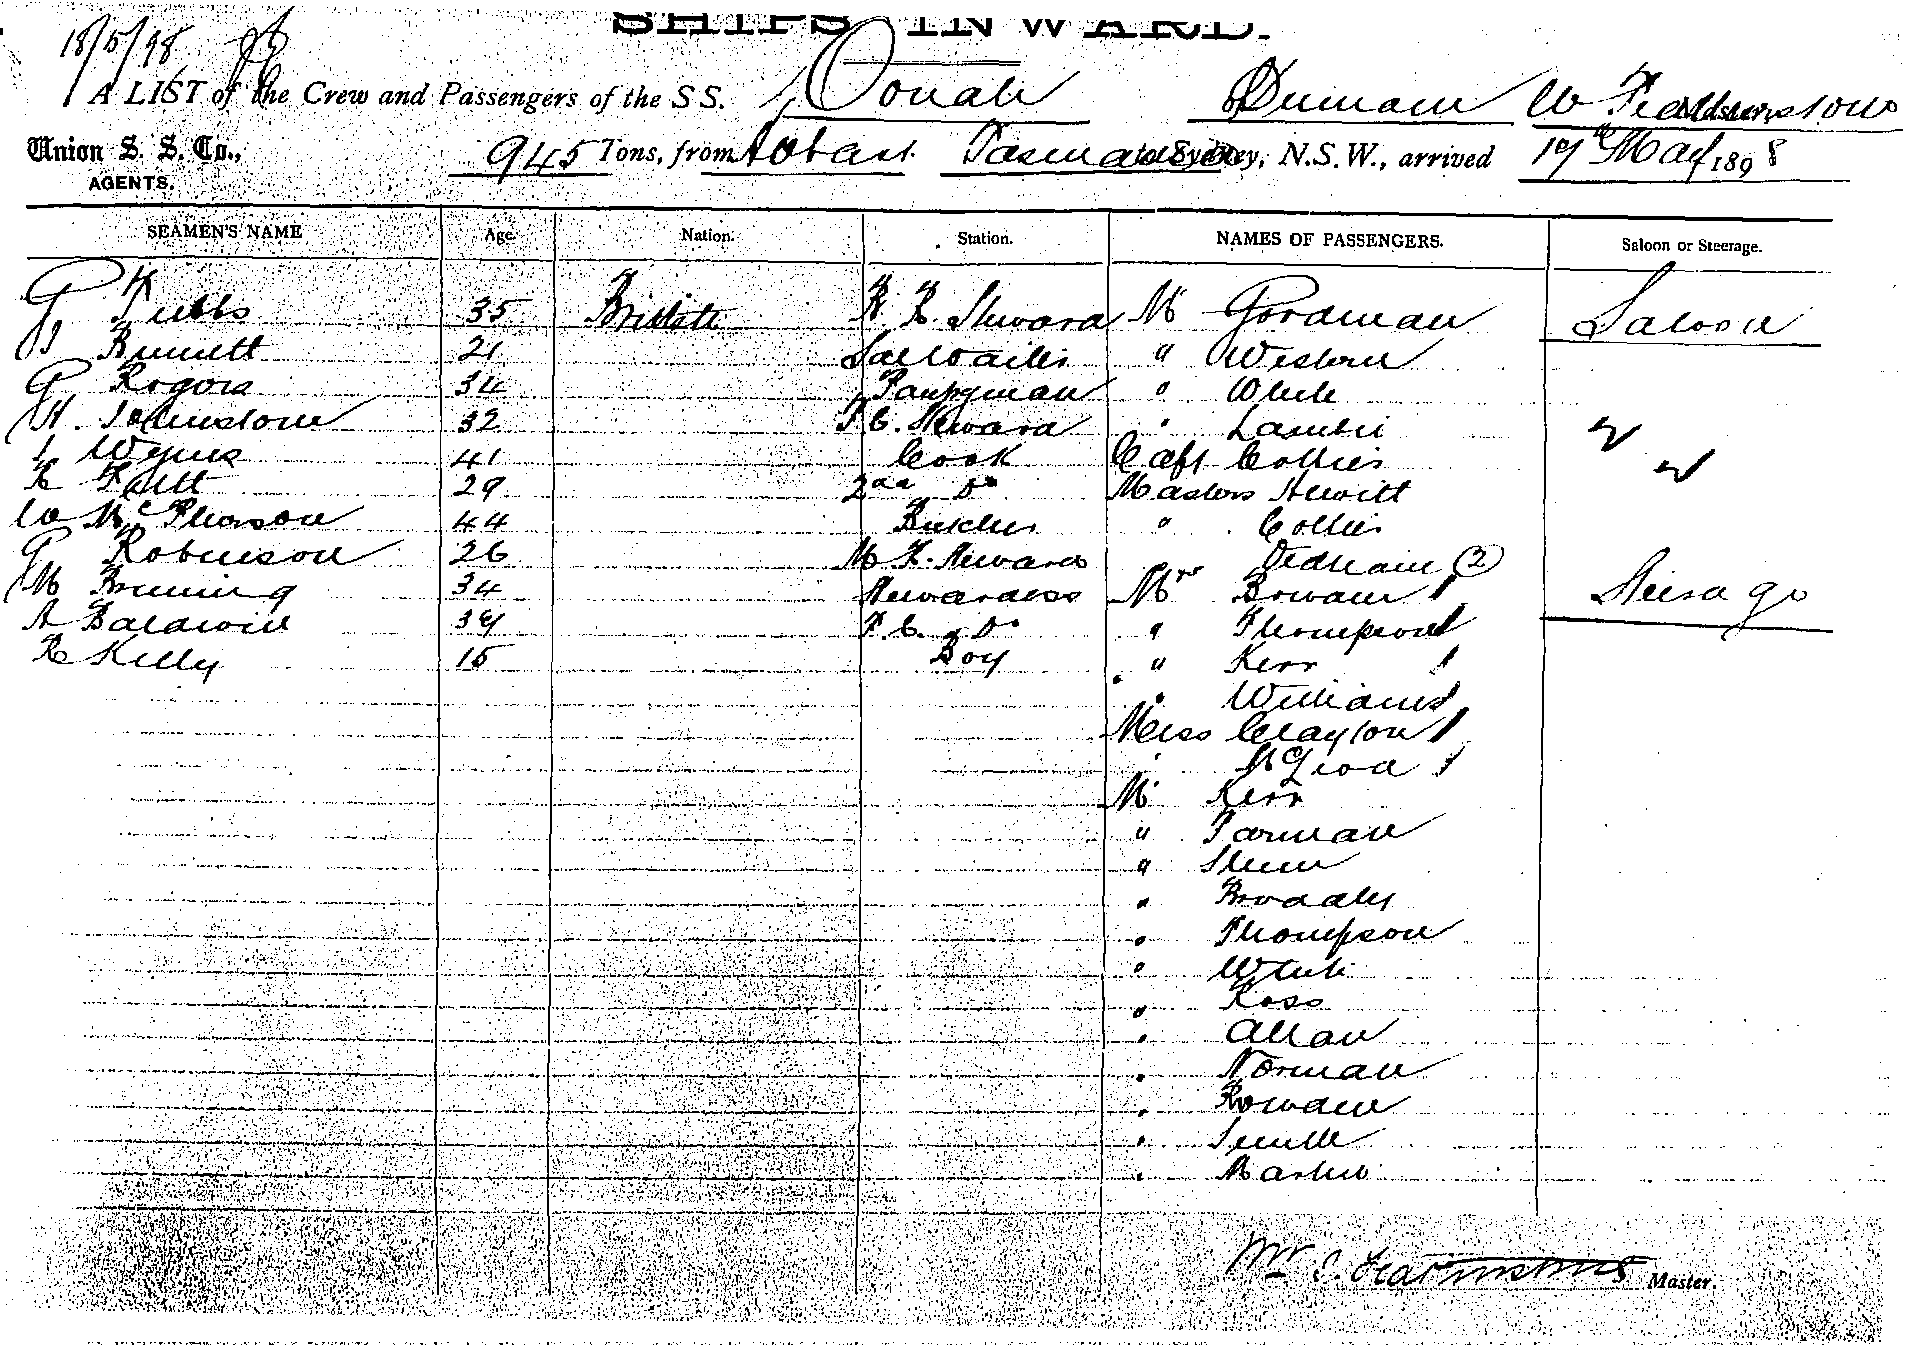 SHIPS INWARD.
18/5/98
A LIST of the Crew and Passengers of the S S. Oonah W Featherstone
Union S. S. Co., 945 Tons, from Hobart Tasmania to Sydney, N.S.W., arrived 17th May 1898
AGENTS.
SEAMEN'S NAME Age. Nation. Station. NAMES OF PASSENGERS. Saloon or Steerage.
G Tubbs 35 British Steward Mr Goodman Saloon
Burnett 21 Sal Waiter " Western
G Rogers 34 Pantryman " White
H. Johnstone 32 F. C. Steward " Lambie
41 Cook Capt Collier
29 2nd Do Masters Hewitt
W McPherson 44 Butcher " Collier
G Robinson 26 Steward Dedham (2)
M Bruning 34 Stewardess Mrs Bowden Steerage
A Baldwin 39 F. C. Do " Thompson
R Kelly 15 Boy " Kerr
" Williams
Miss Clayton
Mr Kerr
" Parman
"
" Broadley
" Thompson
" White
" Ross
" Allan
" Norman
" Rowden
"
"
Featherstone Master.